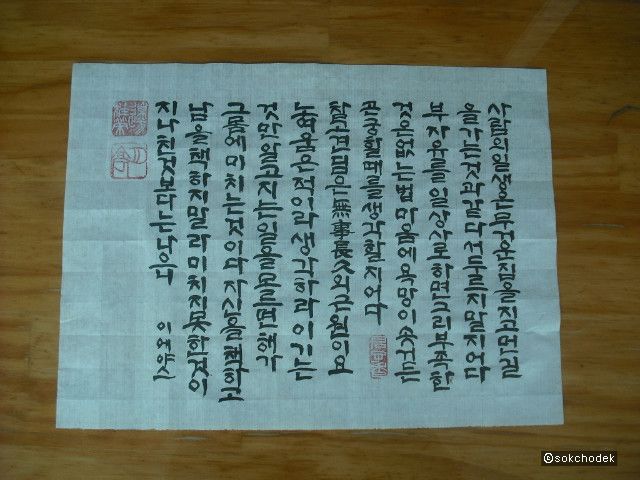 사람의 일생은 무거운 짐을 지고 먼 길
을 가는 것과 같다 서두르지 말지어다
부자유를 일상사로 하면 그리 부족한
것은 없는 법 마음에 욕망이 솟거든
곤궁할 때를 생각할지어다
참고 견딤은 無事長久의 근원이요
노여움은 적이라 생각하라 이기는
것만 알고 지는 일을 모르면
그 몸에 미치는 것이다 자신을 책하고
남을 책하지 말라 미치지 못한 것이
지나친 것보다는 나으니
이에야스
©sokchodek